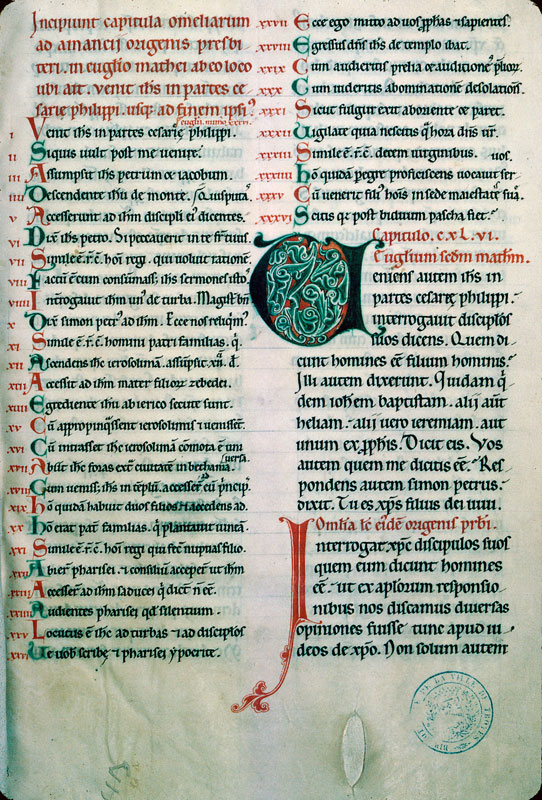 Incipiunt capitula omeliarum
ad amancii origenis presbi
teri. in euglio mathei ab eo loco
ubi ait. venit ihs in partes ce
sarię philippi. usq; ad finem ipsi᾿
euglii. num̄o xxxvi.
i Venit ihs in partes cesarię philippi.
ii Siquis uult post me venire.
iii Assumpsit ihs petrum et iacobum.
iiii Descendente ihu de monte.
v Accesserunt ad ihm discipli ei᾿ dicentes.
vi Dix̄ ihs petro. Si peccaverit in te fr̄ tuus.
vii Simile ē. r̄. c̄. hōi regi. qui voluit rationē.
viii Factū ē cum consūmass; ihs sermones istos
viiii Interrogavit ihm un᾿ de turba. Magist̄ bn̄
x Dix̄ simon petr᾿ ad ihm. Ecce nos reliqm᾿.
xi Simile ē. r̄. c̄. homini patri familias. q̄.
xii Ascendens ihc ierosolimā. assūpsit. xii. d̄.
xiii Accessit ad ihm mater filiorꝝ zebedei.
xiiii Egrediente ihu ab ierico secute sunt.
xv Cū appropinq̄ssent ierosolimis et venissēt.
xvi Cū intrasset ihc ierosolimā cōmota ē uni
versa.
xvii Abiit ihc foras extra civitatē in bethania.
xviii Cum veniss; ihs in tēplū. accesser̄ cū prīcip̄.
xix Hō quidā habuit duos filios et accedens ad.
xx Hō erat pat̄ familias. q̄ plantavit vineā.
xxi Simile ē. r̄. c̄. hōi regi qui fec̄ nuptias filio.
xxii Abier̄ pharisei. et consiliū acceper̄ ut ihm
xxiii Accesser̄ ad ihm saducei q̄ dicūt n̄ eē.
xxiiii Audientes pharisei qd̄ silentium.
xxv Locutus ē ihc ad turbas et ad discipłos
xxvi Ve vob̄ scribę et pharisei ypocrite.
xxvii Ecce ego mitto ad vos ꝓphas et sapientes.
xxviii Egressus dn̄s ihs de templo ibat.
xxix Cum audieritis prelia et auditionē prl̄iorꝝ.
xxx Cum videritis abominationē desolationis.
xxxi Sicut fulgur exit ab oriente et paret.
xxxii Vigilate quia nescitis q̄ hora dn̄s vr̄.
xxxiii Simile ē. r̄. c̄. decem virginibus.
xxxiiii Hō quidā pegre proficiscens vocavit servos.
xxxv Cū venerit fili᾿ hōis in sede maiestatis suę.
xxxvi Scitis qr̄ post biduum pascha fiet.
Capitulo. c. xl. vi.
Euglium scdm mathm.
Veniens autem ihs in
partes cesarę philippi.
interrogavit discipłos
suos dicens. Quem di
cunt homines eē filium hominis?
Illi autem dixerunt. Quidam q̄
dem iohem baptistam. alii aūt
heliam. alii vero ieremiam. aut
unum ex ꝓphis. Dicit eis. Vos
autem quem me dicitis eē? Res
pondens autem simon petrus.
dixit. Tu es xp̄s filius dei vivi.
Omlia lc̄ eidē origenis prbi.
Interrogat xp̄c discipulos suos
quem eum dicunt homines
eē. ut ex aplorum responsio
nibus nos discamus diversas
opiniones fuisse tunc apud iu
deos de xp̄o. Non solum autem
DE LA VILLE DE TROYES